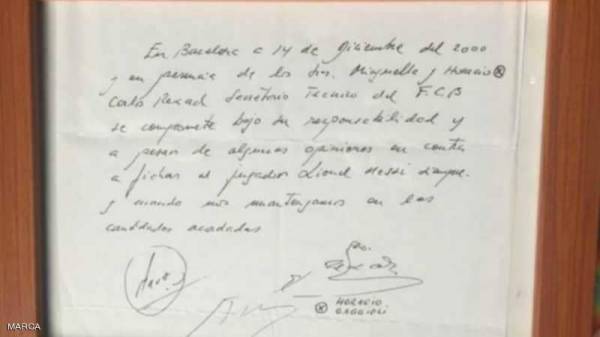 En Barcelona a 14 de diciembre del 2000
y en presencia de los Srs. Minguella y Horacio
Carlos Rexach Secretario Tecnico del F.C.B
se compromete bajo su responsabilidad y
a pesar de algunas opiniones en contra
a fichar al jugador Lionel Messi siempre
y cuando nos mantengamos en las
cantidades acordadas
HORACIO
GAGGIOLI
MARCA